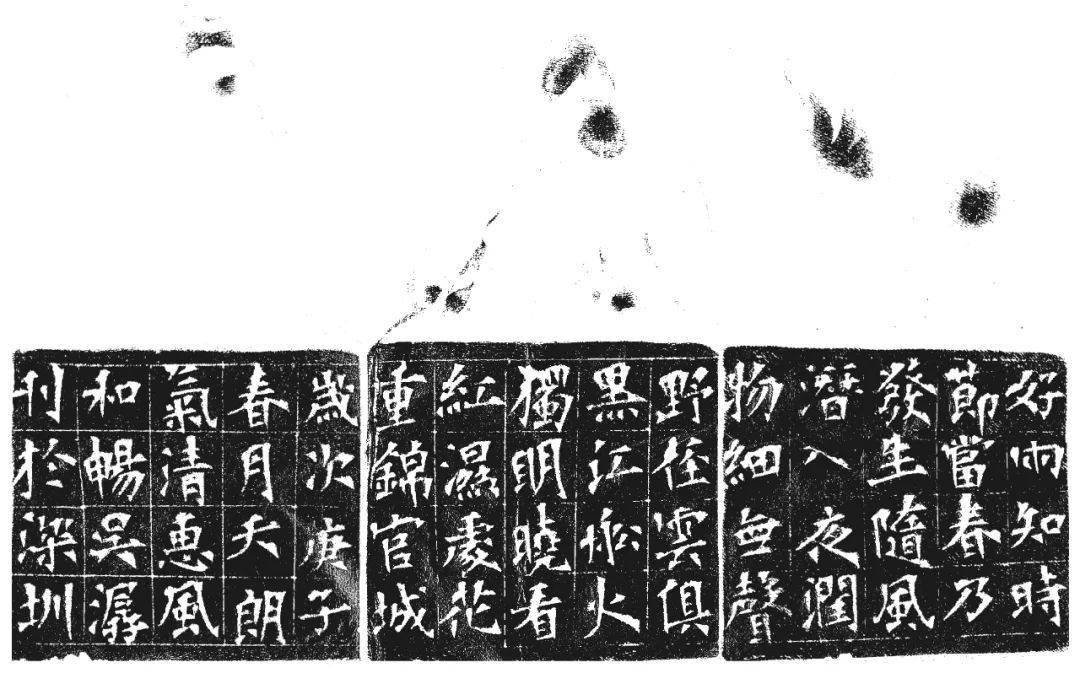 好雨知時
節當春乃
發生隨風
潛入夜潤
物細無聲
野徑雲俱
黑江船火
獨明曉看
紅濕處花
重錦官城
歲次庚子
春月天朗
氣清惠風
和暢吳潺
刊於深圳